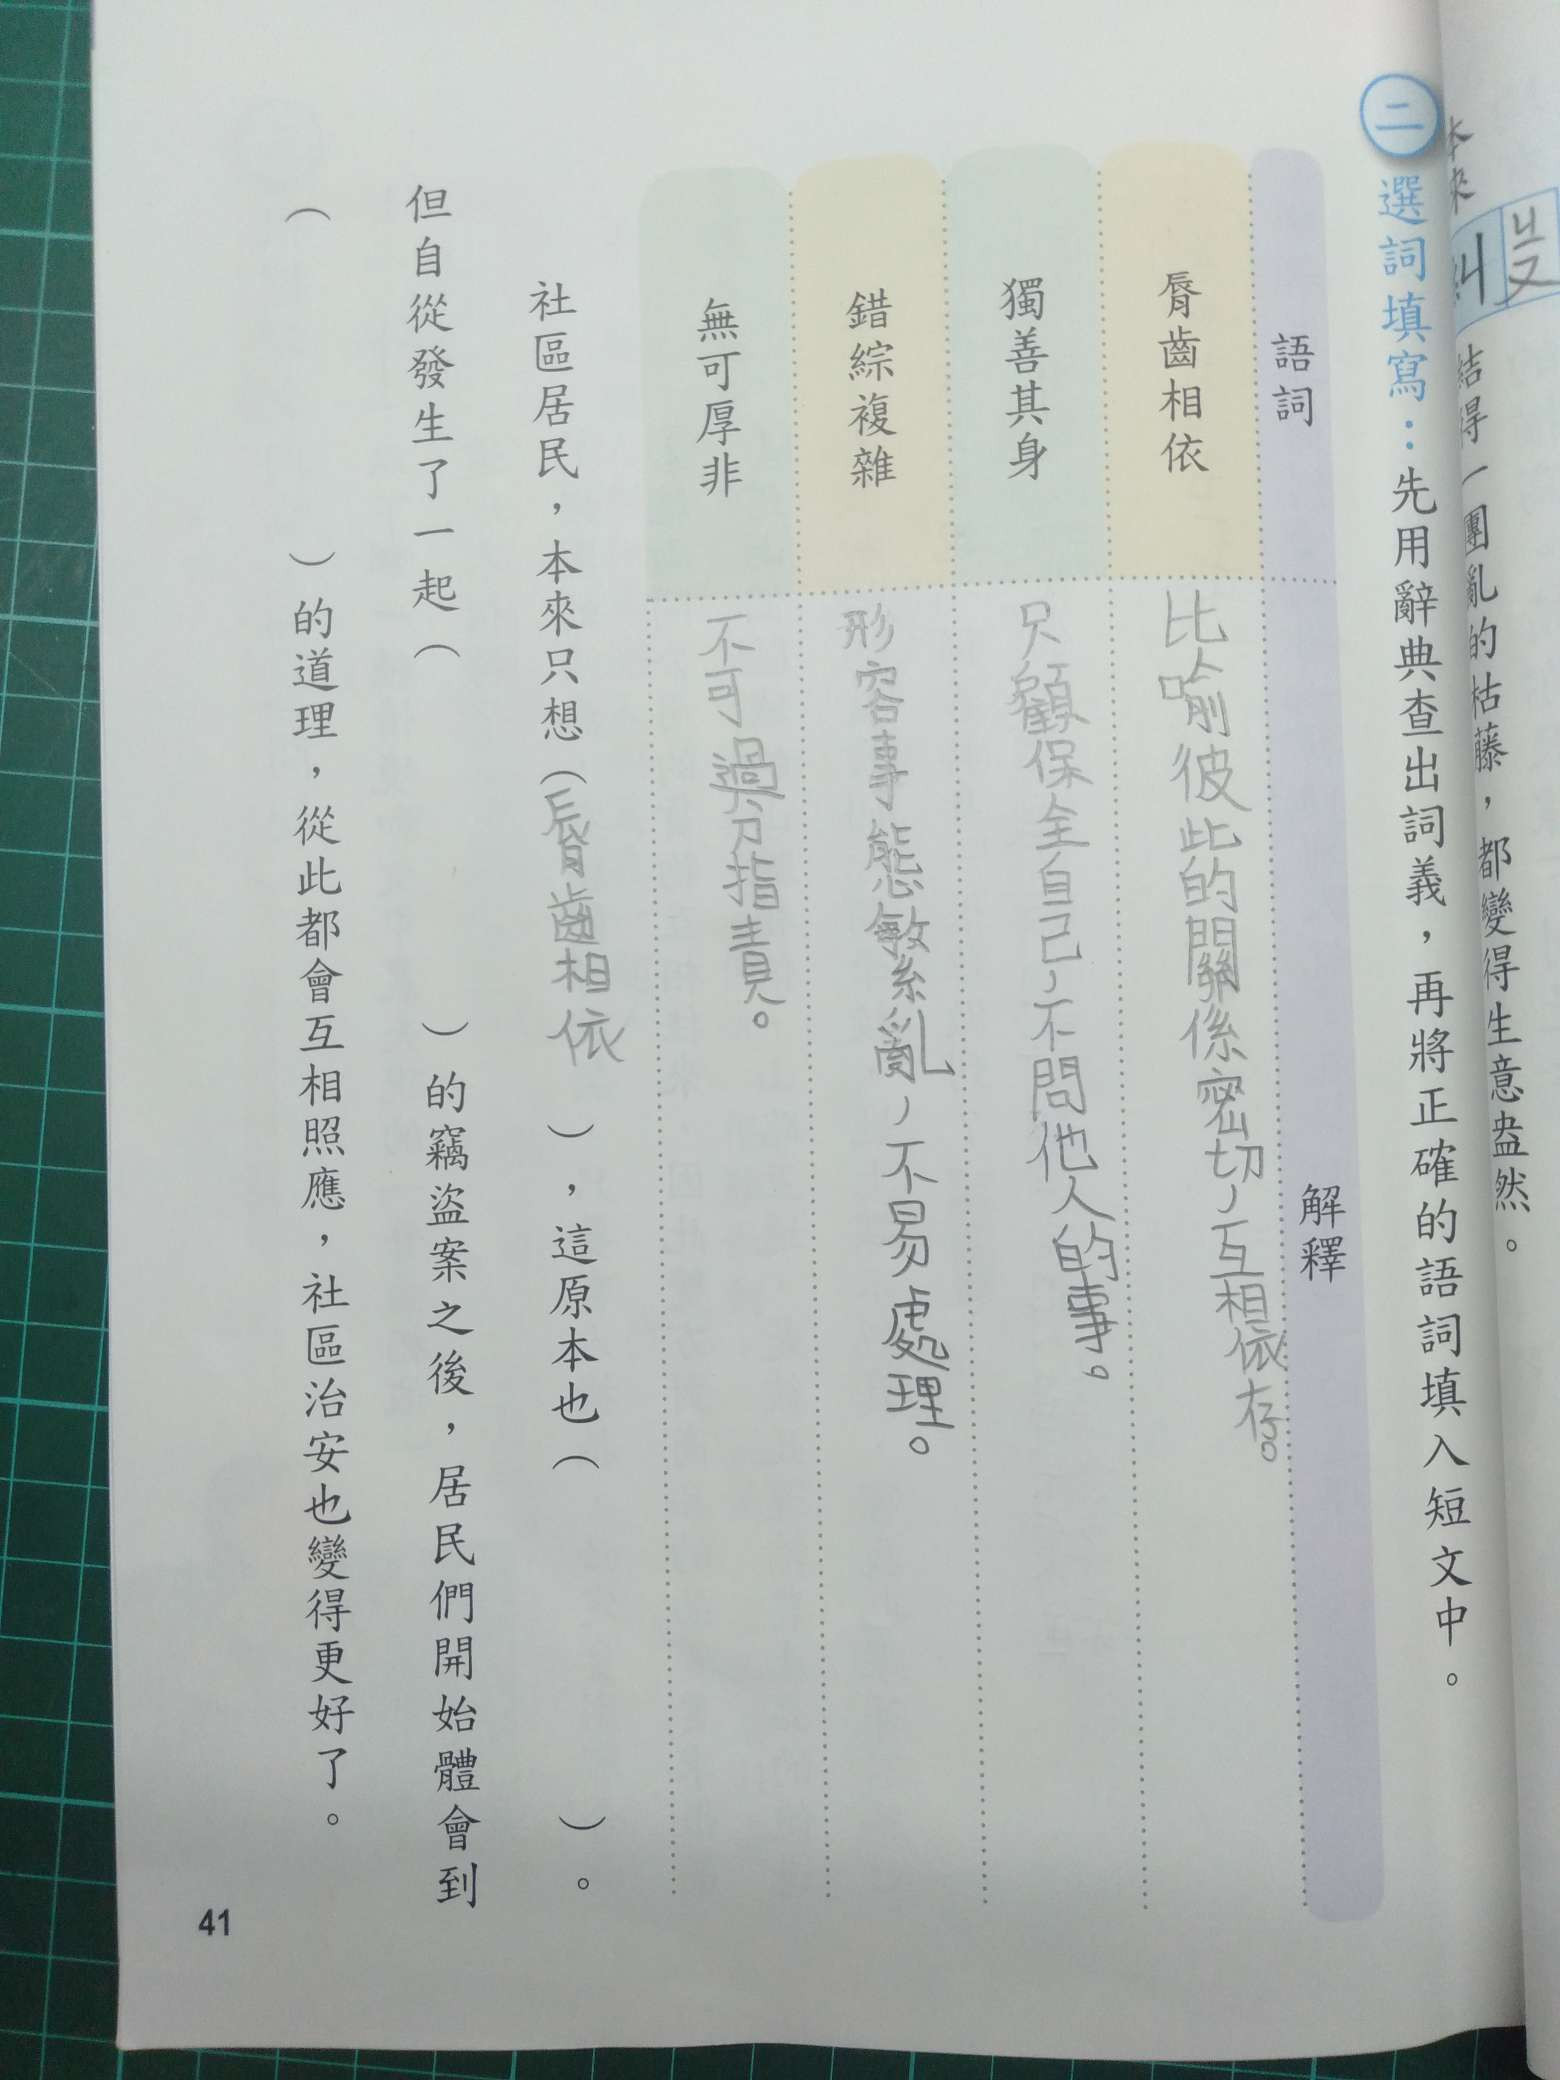 本來
糾 ㄐㄡ 結得一團亂的枯藤，都變得生意盎然。
二 選詞填寫：先用辭典查出詞義，再將正確的語詞填入短文中。
語詞 解釋
脣齒相依 比喻彼此的關係密切，互相依存。
獨善其身 只顧保全自己，不問他人的事。
錯綜複雜 形容事態繁亂，不易處理。
無可厚非 不可過分指責。
社區居民，本來只想（脣齒相依），這原本也（ ）。
但自從發生了一起（ ）的竊盜案之後，居民們開始體會到
（ ）的道理，從此都會互相照應，社區治安也變得更好了。
41